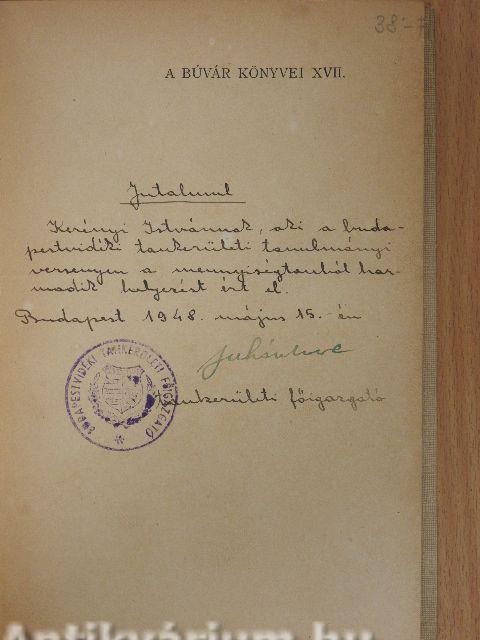 38.-
A BÚVÁR KÖNYVEI XVII.
Jutalmul
Kerényi Istvánnak, aki a buda-
pestvidéki tankerületi tanulmányi
versenyen a mennyiségtanból har-
madik helyezést ért el.
Budapest 1948. május 15.-én
tankerületi főigazgató
BUDAPESTVIDÉKI TANKERÜLETI FŐIGAZGATÓ
Antikvárium.hu